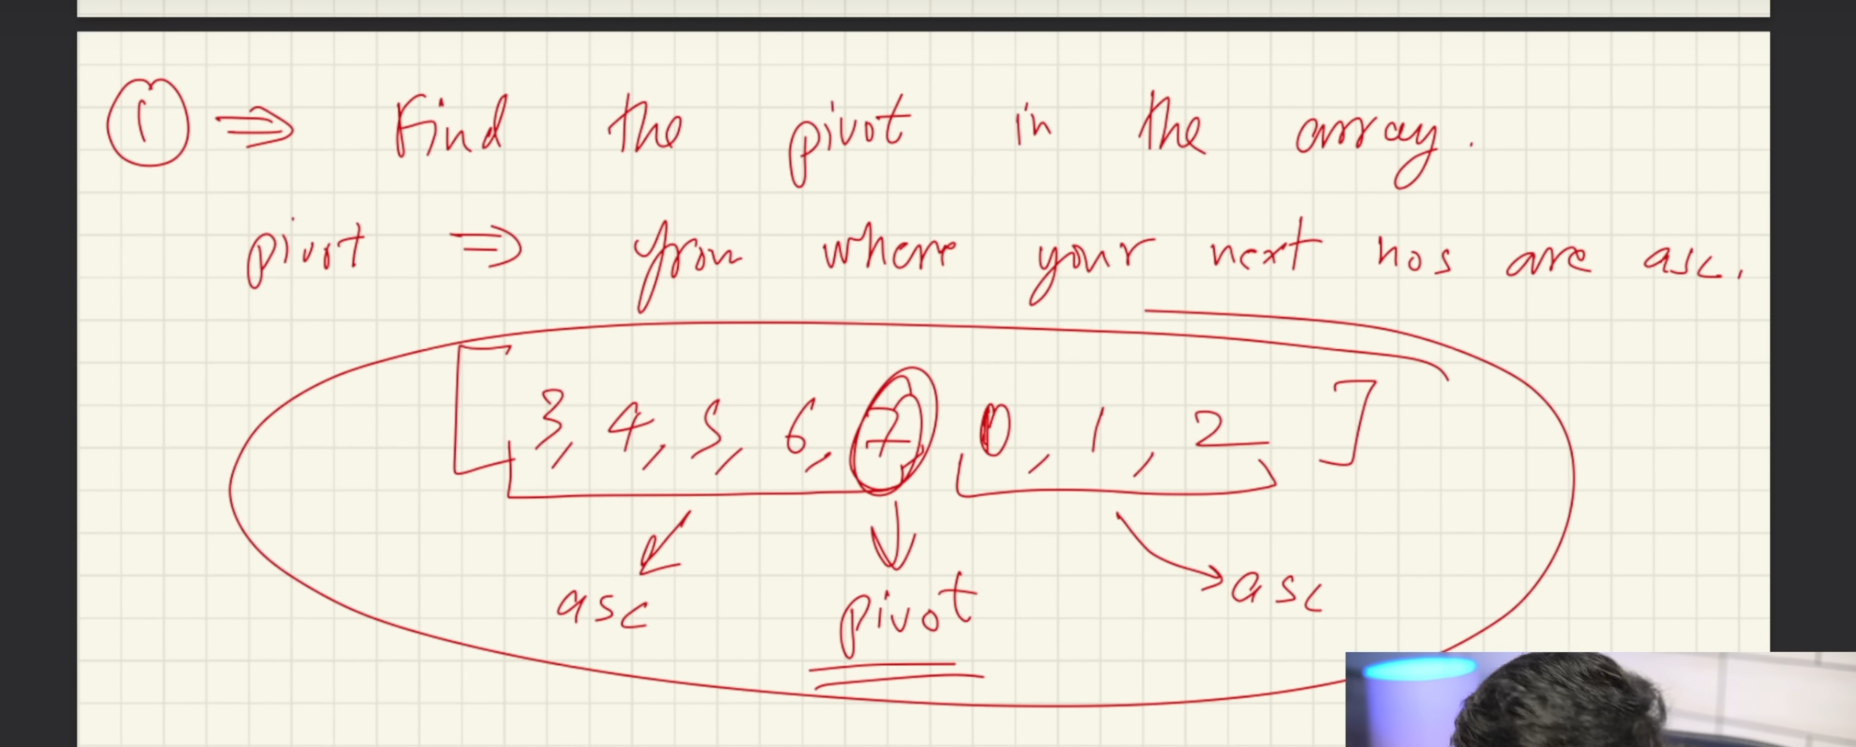 ① ⇒ Find the pivot in the array.
pivot ⇒ from where your next nos are asc.
[ 3, 4, 5, 6, 7, 0, 1, 2 ]
asc pivot asc